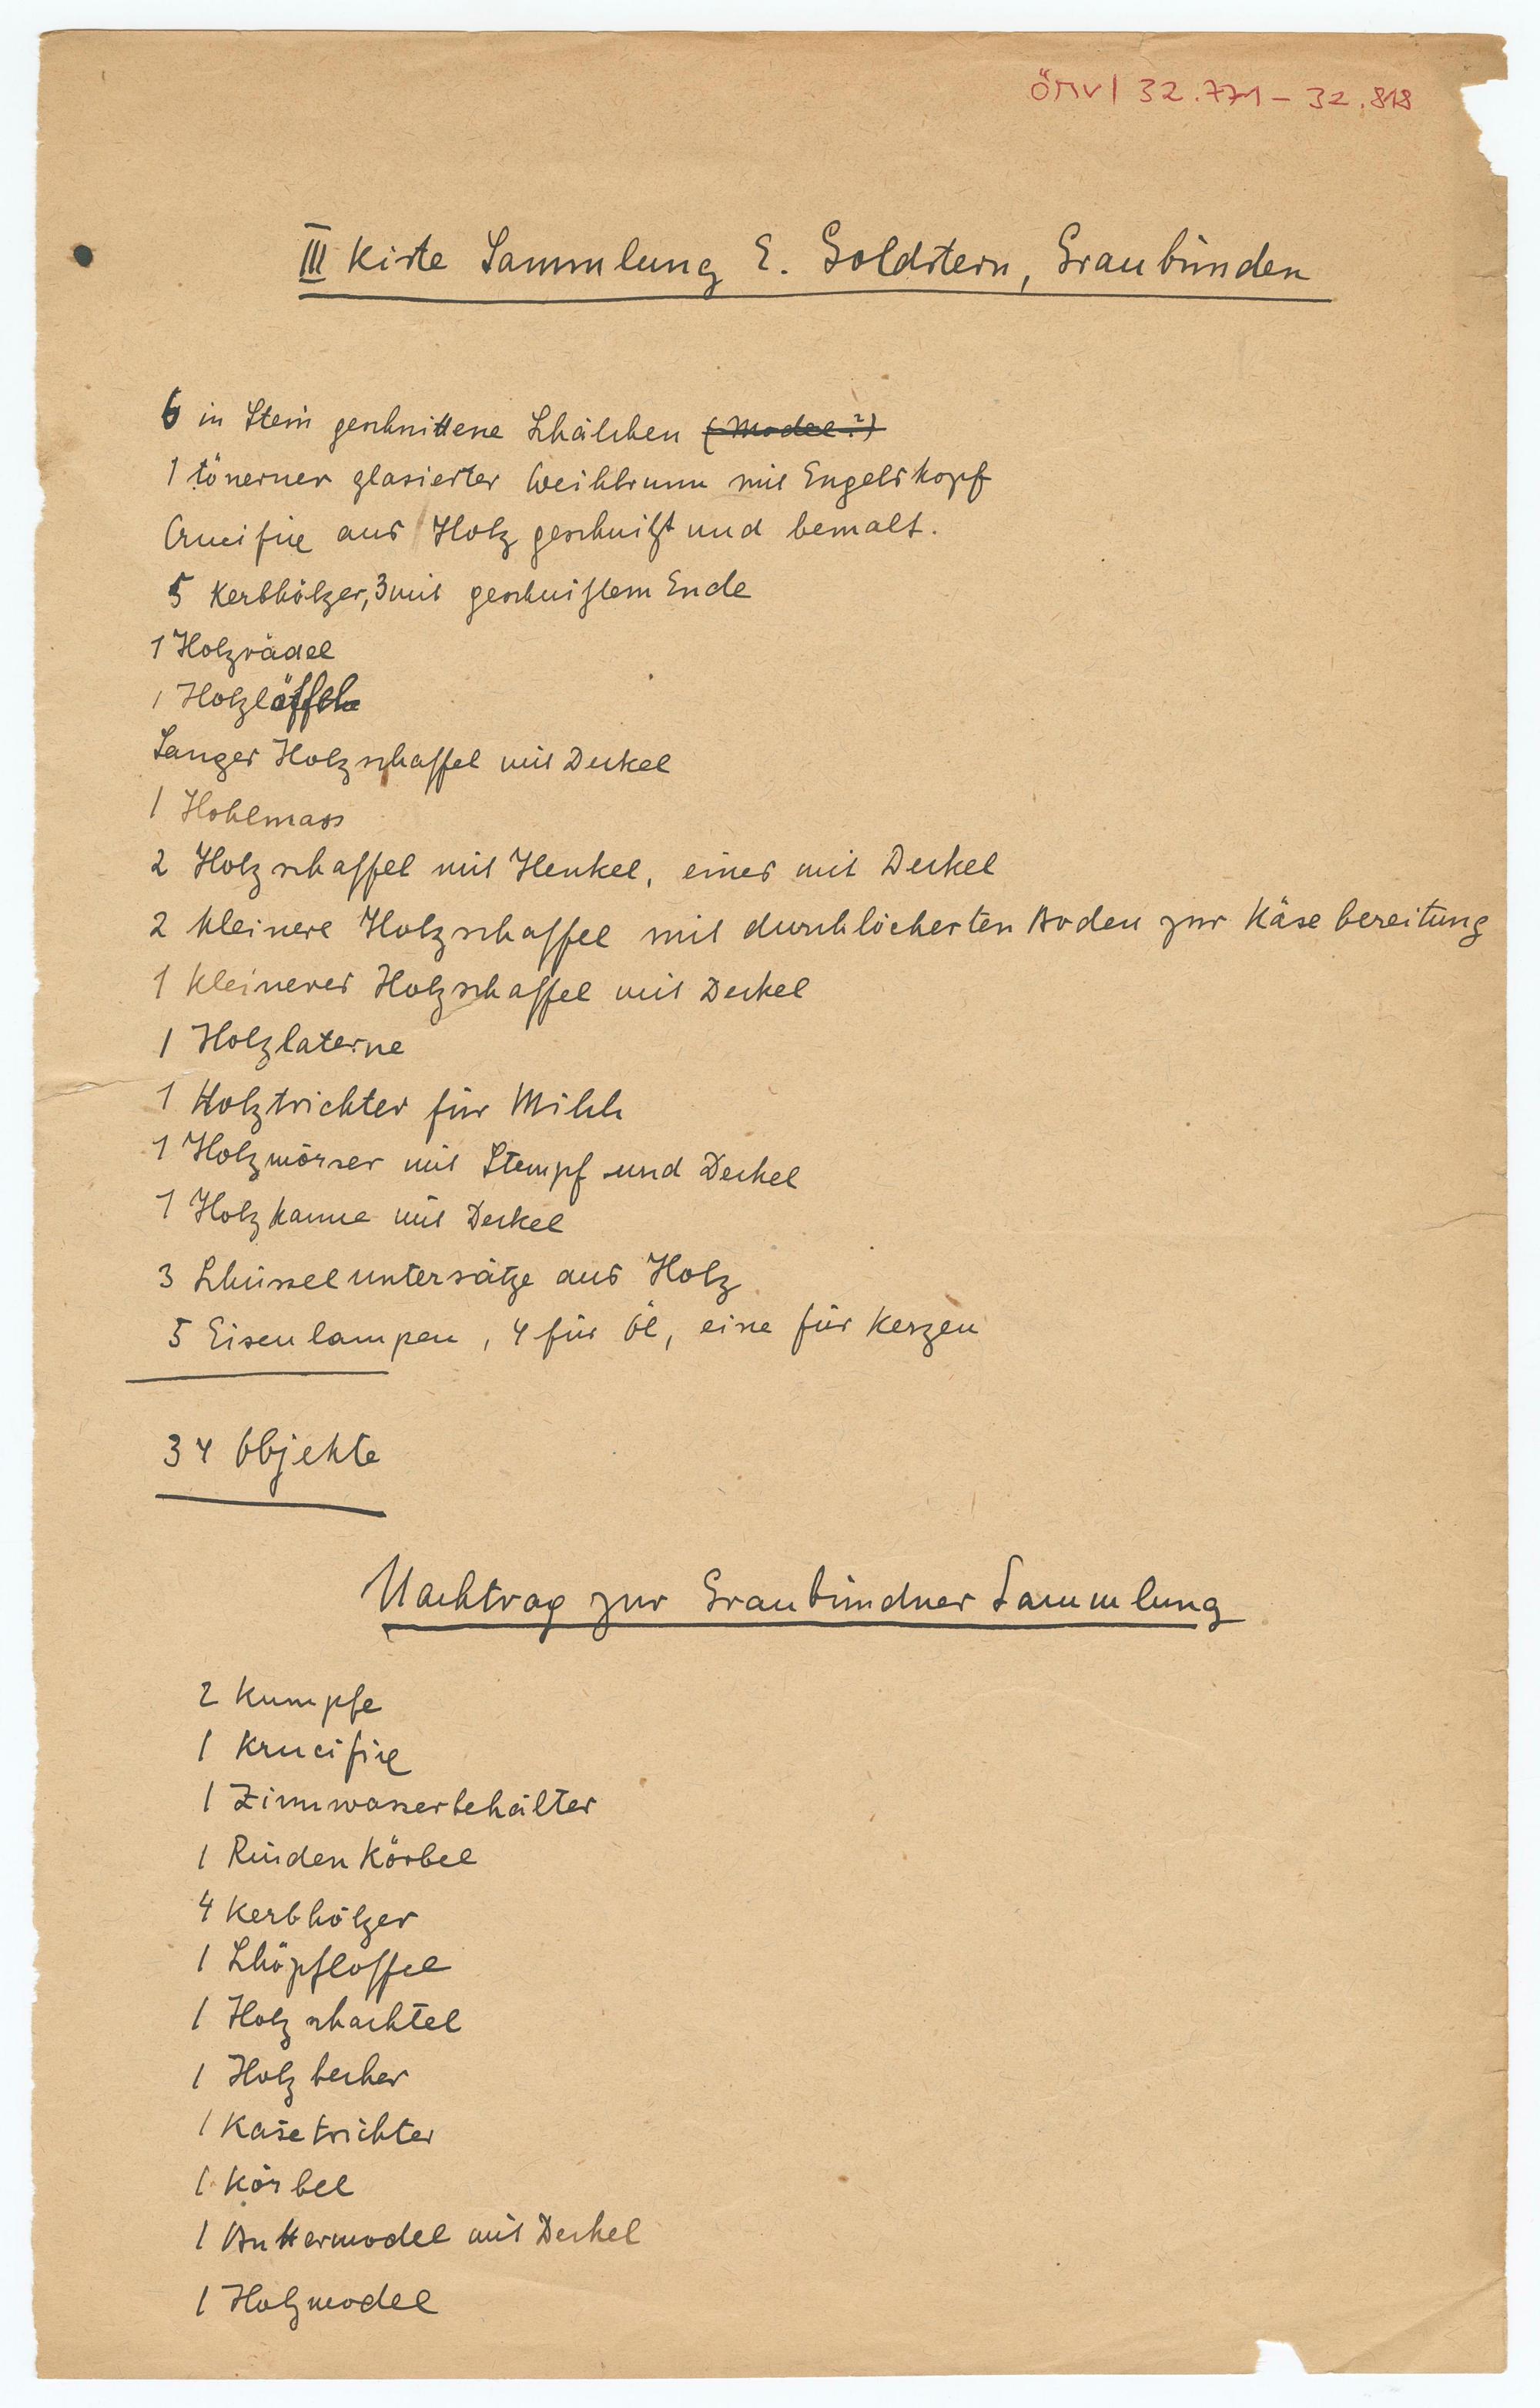 ÖMV/ 32.771 – 32.818
III Kiste Sammlung E. Goldstern, Graubünden
6 in Stein geschnittene Schälchen (Model?)
1 tönerner glasierter Weihbrunn mit Engelskopf
Crucifix aus Holz geschnitzt und bemalt.
5 Kerbhölzer, 3 mit geschnitztem Ende
1 Holzrädel
1 Holzlöffel
Langer Holzschaffel mit Deckel
1 Hohlmass
2 Holzschaffel mit Henkel, eines mit Deckel
2 kleinere Holzschaffel mit durchlöcherten Boden zur Käsebereitung
1 kleineres Holzschaffel mit Deckel
1 Holzlaterne
1 Holztrichter für Milch
1 Holzmörser mit Stempf und Deckel
1 Holzkanne mit Deckel
3 Schüsseluntersätze aus Holz
5 Eisenlampen, 4 für Öl, eine für Kerzen
34 Objekte
Nachtrag zur Graubündner Sammlung
2 Kumpfe
1 Krucifix
1 Zinnwasserbehälter
1 Rindenkörbel
4 Kerbhölzer
1 Schöpfloffel
1 Holzschachtel
1 Holzbecher
1 Käsetrichter
1 Körbel
1 Buttermodel mit Deckel
1 Holzmodel